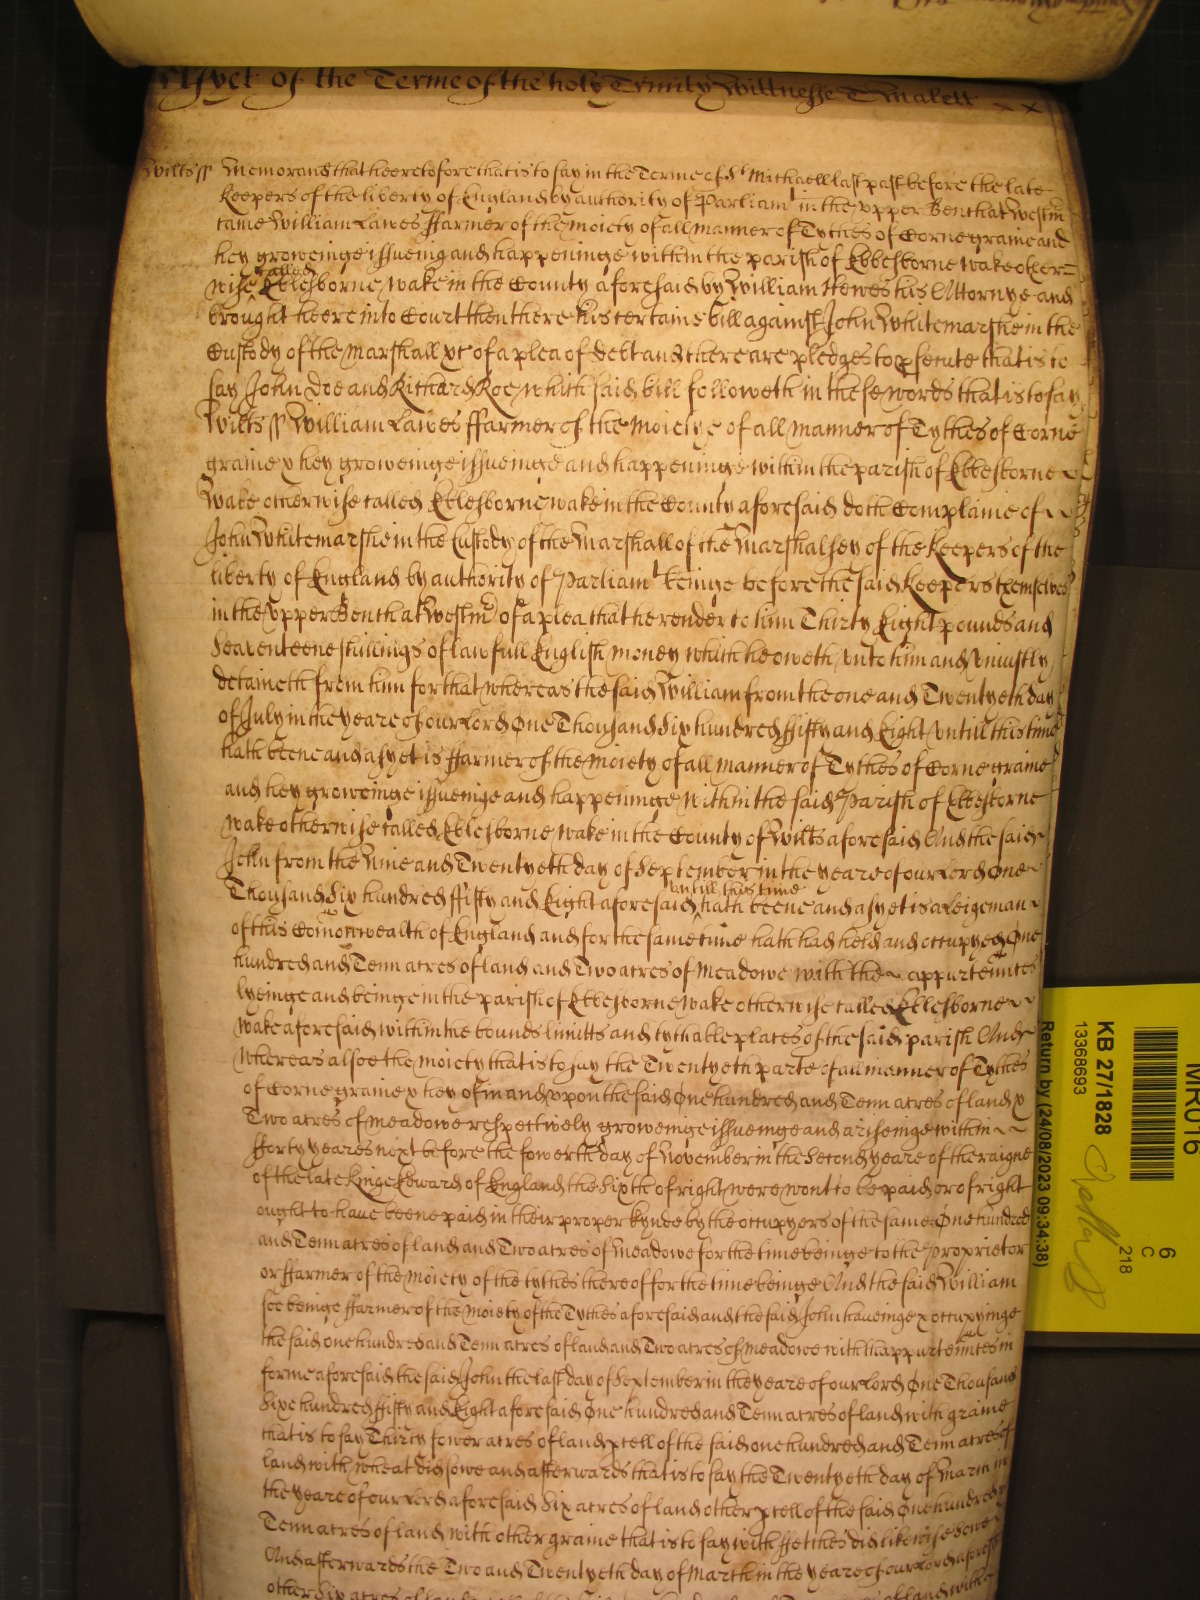 As yet of the Terme of the holy Trinity Wittnesse T Malett
Wilts ss Memorand that heeretofore that is to say in the Terme of St Michaell last past before the late
Keepers of the liberty of England by authority of Parliamt in the vpper Bench at Westmr
came William Lawes ffarmer of the moiety of all manner of Tythes of Corne graine and
hey groweinge issueing and happeninge within the parish of Ebbesborne wake other=
wise called Eblesborne wake in the County aforesaid by William Howes his Attornye and
brought heere into Court then there his certaine bill against John Whitemarshe in the
Custody of the Marshall &c of a plea of debt and there are pledges to psecute that is to
say John Doe and Richard Roe which said bill followeth in these words that is to say
Wilts ss William Lawes ffarmer of the Moietye of all manner of Tythes of Corne
graine & hey groweinge issueinge and happeninge within the parish of Ebbesborne
Wake otherwise called Eblesborne wake in the County aforesaid doth Complaine of
John Whitemarshe in the Custody of the Marshall of the Marshalsey of the Keepers of the
liberty of England by authority of Parliamt beinge before the said Keepers themselves
in the vpper Bench at Westmr of a plea that he render to him Thirty Eight pounds and
Seaventeene shillings of lawfull English money which he oweth vnto him and Vniustly
detaineth from him for that whereas the said William from the one and Twentyeth day
of July in the yeare of our Lord One Thousand Six hundred ffifty and Eight vntill this time
hath beene and as yet is ffarmer of the Moiety of all manner of Tythes of Corne graine
and hey groweinge issueinge and happeninge within the said Parish of Ebbesborne
wake otherwise called Eblesborne wake in the County of Wilts aforesaid And the said
John from the Nine and Twentyeth day of September in the yeare of our Lord One
Thousand Six hundred ffifty and Eight aforesaid vntill this time hath beene and as yet is a leigeman
of this Comonwealth of England and for the same time hath had held and occupyed One
hundred and Tenn acres of land and Two acres of Meadowe with the appurtennces
lyeinge and beinge in the parish of Ebbesborne wake otherwise called Eblesborne
wake aforesaid within the bounds limitts and tythable places of the said parish And
whereas alsoe the moiety that is to say the Twentyeth parte of all manner of Tythes
of Corne graine & hey of in and vpon the said One hundred and Tenn acres of land &
Two acres of meadowe respectively groweinge issueinge and ariseinge within
fforty yeares next before the fowerth day of November in the Second yeare of the raigne
of the late Kinge Edward of England the Sixth of right were wont to be paid or of right
ought to haue beene paid in their proper kynde by the occupyers of the same One hundred
and Tenn acres of land and Two acres of Meadowe for the time beinge to the Proprietor
or ffarmer of the Moiety of the tythes thereof for the time beinge And the said William
soe beinge ffarmer of the Moiety of the Tythes aforesaid and the said John haueinge & occupyinge
the said one hundred and Tenn acres of land and Two acres of Meadowe with thappurtennces in
forme aforesaid the said John the last day of September in the yeare of our Lord One Thousand
Sixe hundred ffifty and Eight aforesaid One hundred and Tenn acres of land with graine
that is to say Thirty fower acres of land pcell of the said one hundred and Tenn acres of
land with wheat did sowe and afterwards that is to say the Twentyeth day of March in
the yeare of our Lord aforesaid Six acres of land other pcell of the said One hundred &
Tenn acres of land with other graine that is to say with ffetches did likewise sowe
And afterwards the Two and Twentyeth day of March in the yeare of our Lord aforesd
other Six acres of land
MR016
6
C
218
KB 27/1828
13368693
Return by (24/08/2023 09:34:38)